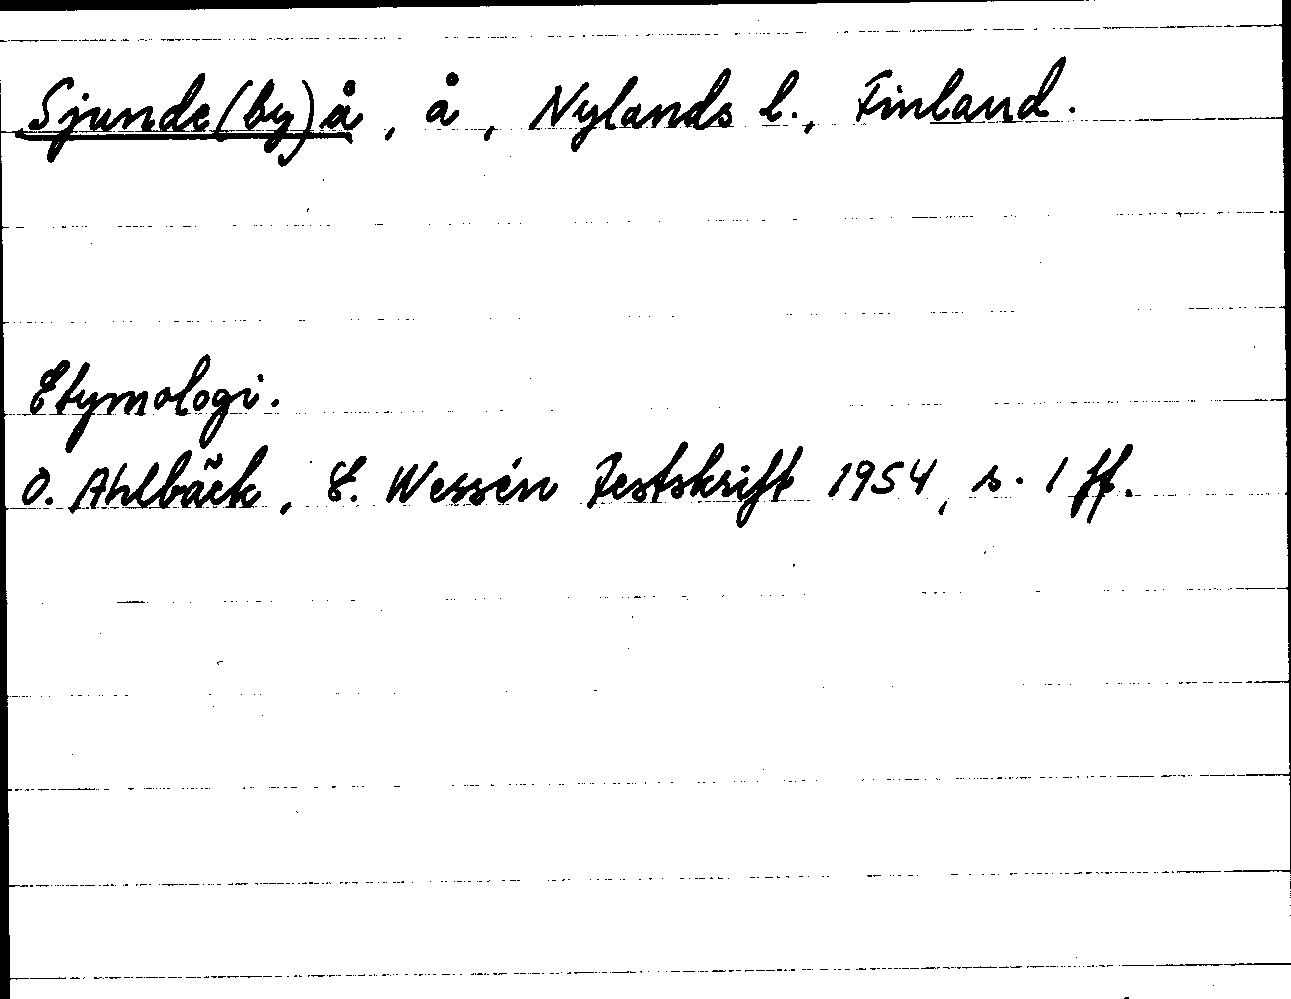 Sjunde(by)å, å, Nylands l., Finland.
Etymologi.
O. Ahlbäck, E. Wessén Festskrift 1954, s. 1 ff.